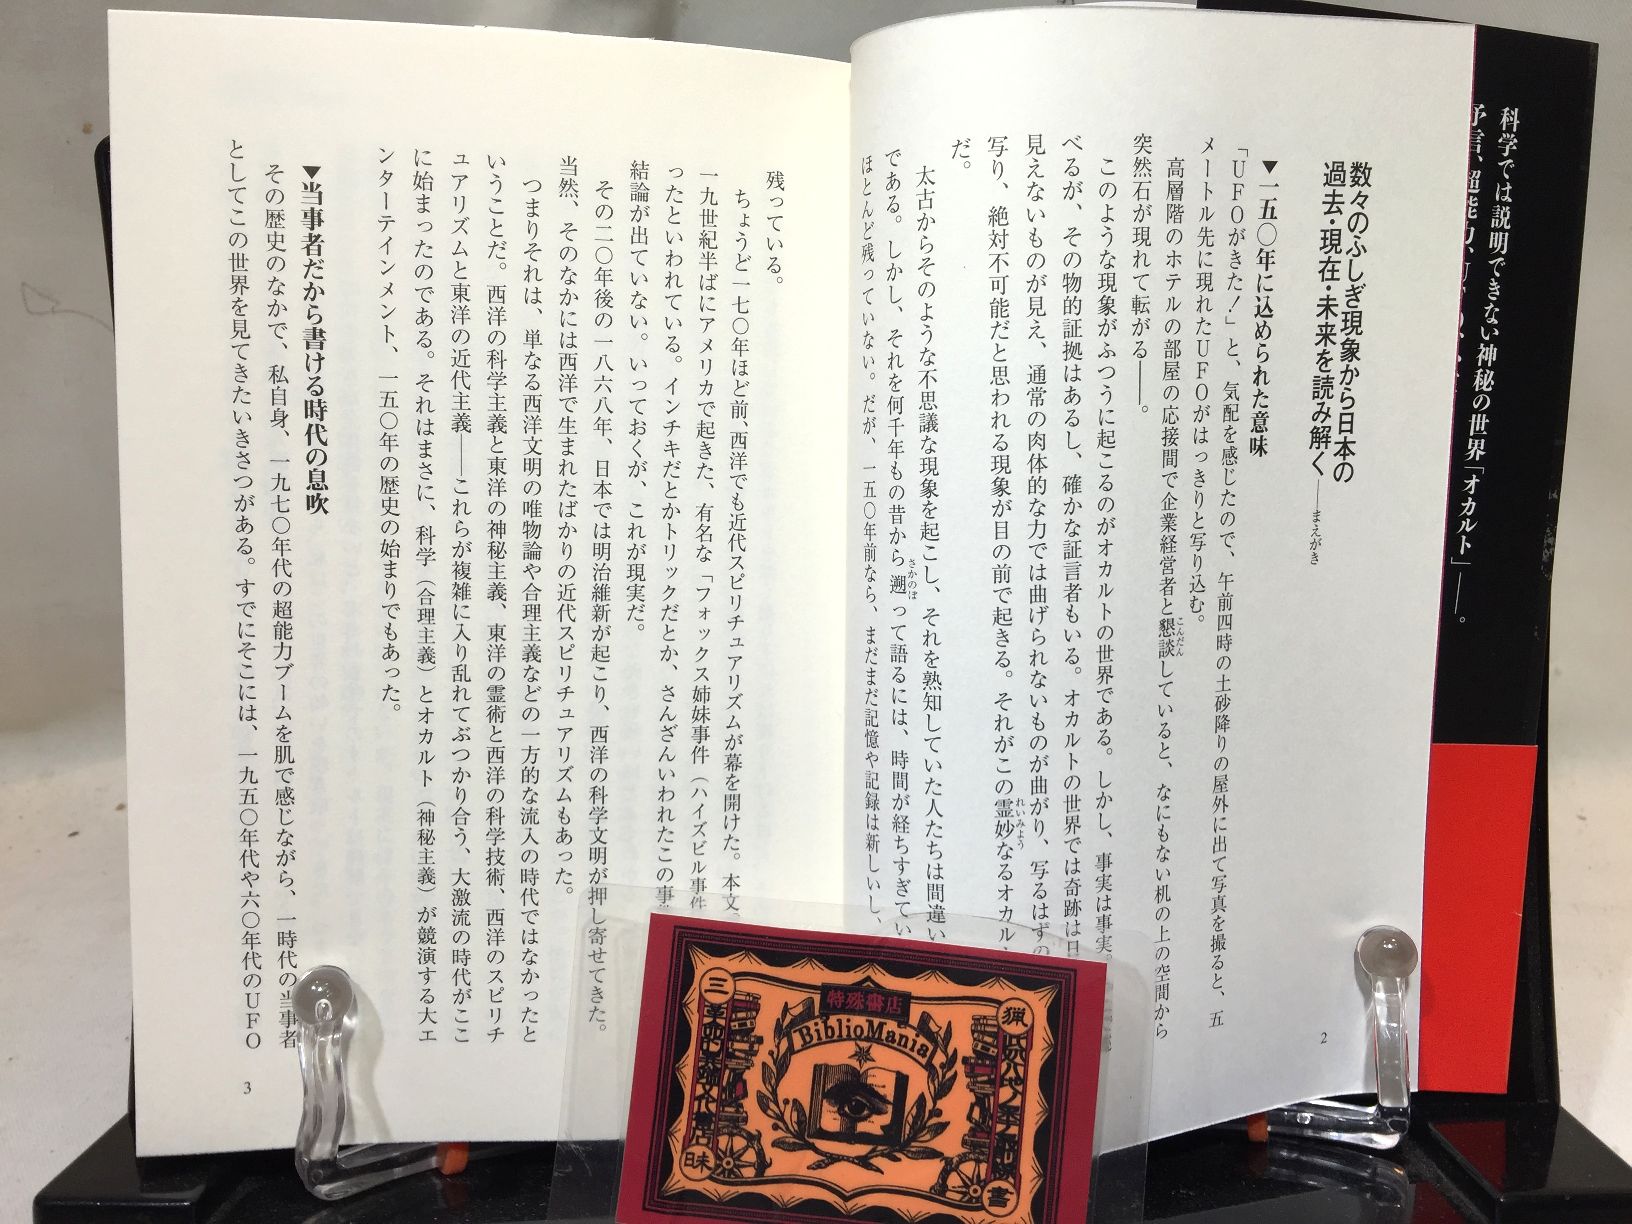 科学では説明できない神秘の世界「オカルト」――。
予言、超能力、
数々のふしぎ現象から日本の
過去・現在・未来を読み解く――まえがき
▼一五〇年に込められた意味
「UFOがきた！」と、気配を感じたので、午前四時の土砂降りの屋外に出て写真を撮ると、五
メートル先に現れたUFOがはっきりと写り込む。
高層階のホテルの部屋の応接間で企業経営者と懇談していると、なにもない机の上の空間から
突然石が現れて転がる――。
このような現象がふつうに起こるのがオカルトの世界である。しかし、事実は事実。
べるが、その物的証拠はあるし、確かな証言者もいる。オカルトの世界では奇跡は日
見えないものが見え、通常の肉体的な力では曲げられないものが曲がり、写るはずの
写り、絶対不可能だと思われる現象が目の前で起きる。それがこの霊妙なるオカル
だ。
太古からそのような不思議な現象を起こし、それを熟知していた人たちは間違い
である。しかし、それを何千年もの昔から遡って語るには、時間が経ちすぎてい
ほとんど残っていない。だが、一五〇年前なら、まだまだ記憶や記録は新しいし、
2
残っている。
ちょうど一七〇年ほど前、西洋でも近代スピリチュアリズムが幕を開けた。本文
一九世紀半ばにアメリカで起きた、有名な「フォックス姉妹事件（ハイズビル事件
ったといわれている。インチキだとかトリックだとか、さんざんいわれたこの事
結論が出ていない。いっておくが、これが現実だ。
その二〇年後の一八六八年、日本では明治維新が起こり、西洋の科学文明が押し寄せてきた。
当然、そのなかには西洋で生まれたばかりの近代スピリチュアリズムもあった。
つまりそれは、単なる西洋文明の唯物論や合理主義などの一方的な流入の時代ではなかったと
いうことだ。西洋の科学主義と東洋の神秘主義、東洋の霊術と西洋の科学技術、西洋のスピリチ
ュアリズムと東洋の近代主義――これらが複雑に入り乱れてぶつかり合う、大激流の時代がここ
に始まったのである。それはまさに、科学（合理主義）とオカルト（神秘主義）が競演する大エ
ンターテインメント、一五〇年の歴史の始まりでもあった。
▼当事者だから書ける時代の息吹
その歴史のなかで、私自身、一九七〇年代の超能力ブームを肌で感じながら、一時代の当事者
としてこの世界を見てきたいきさつがある。すでにそこには、一九五〇年代や六〇年代のUFO
3
特殊書店
BiblioMania